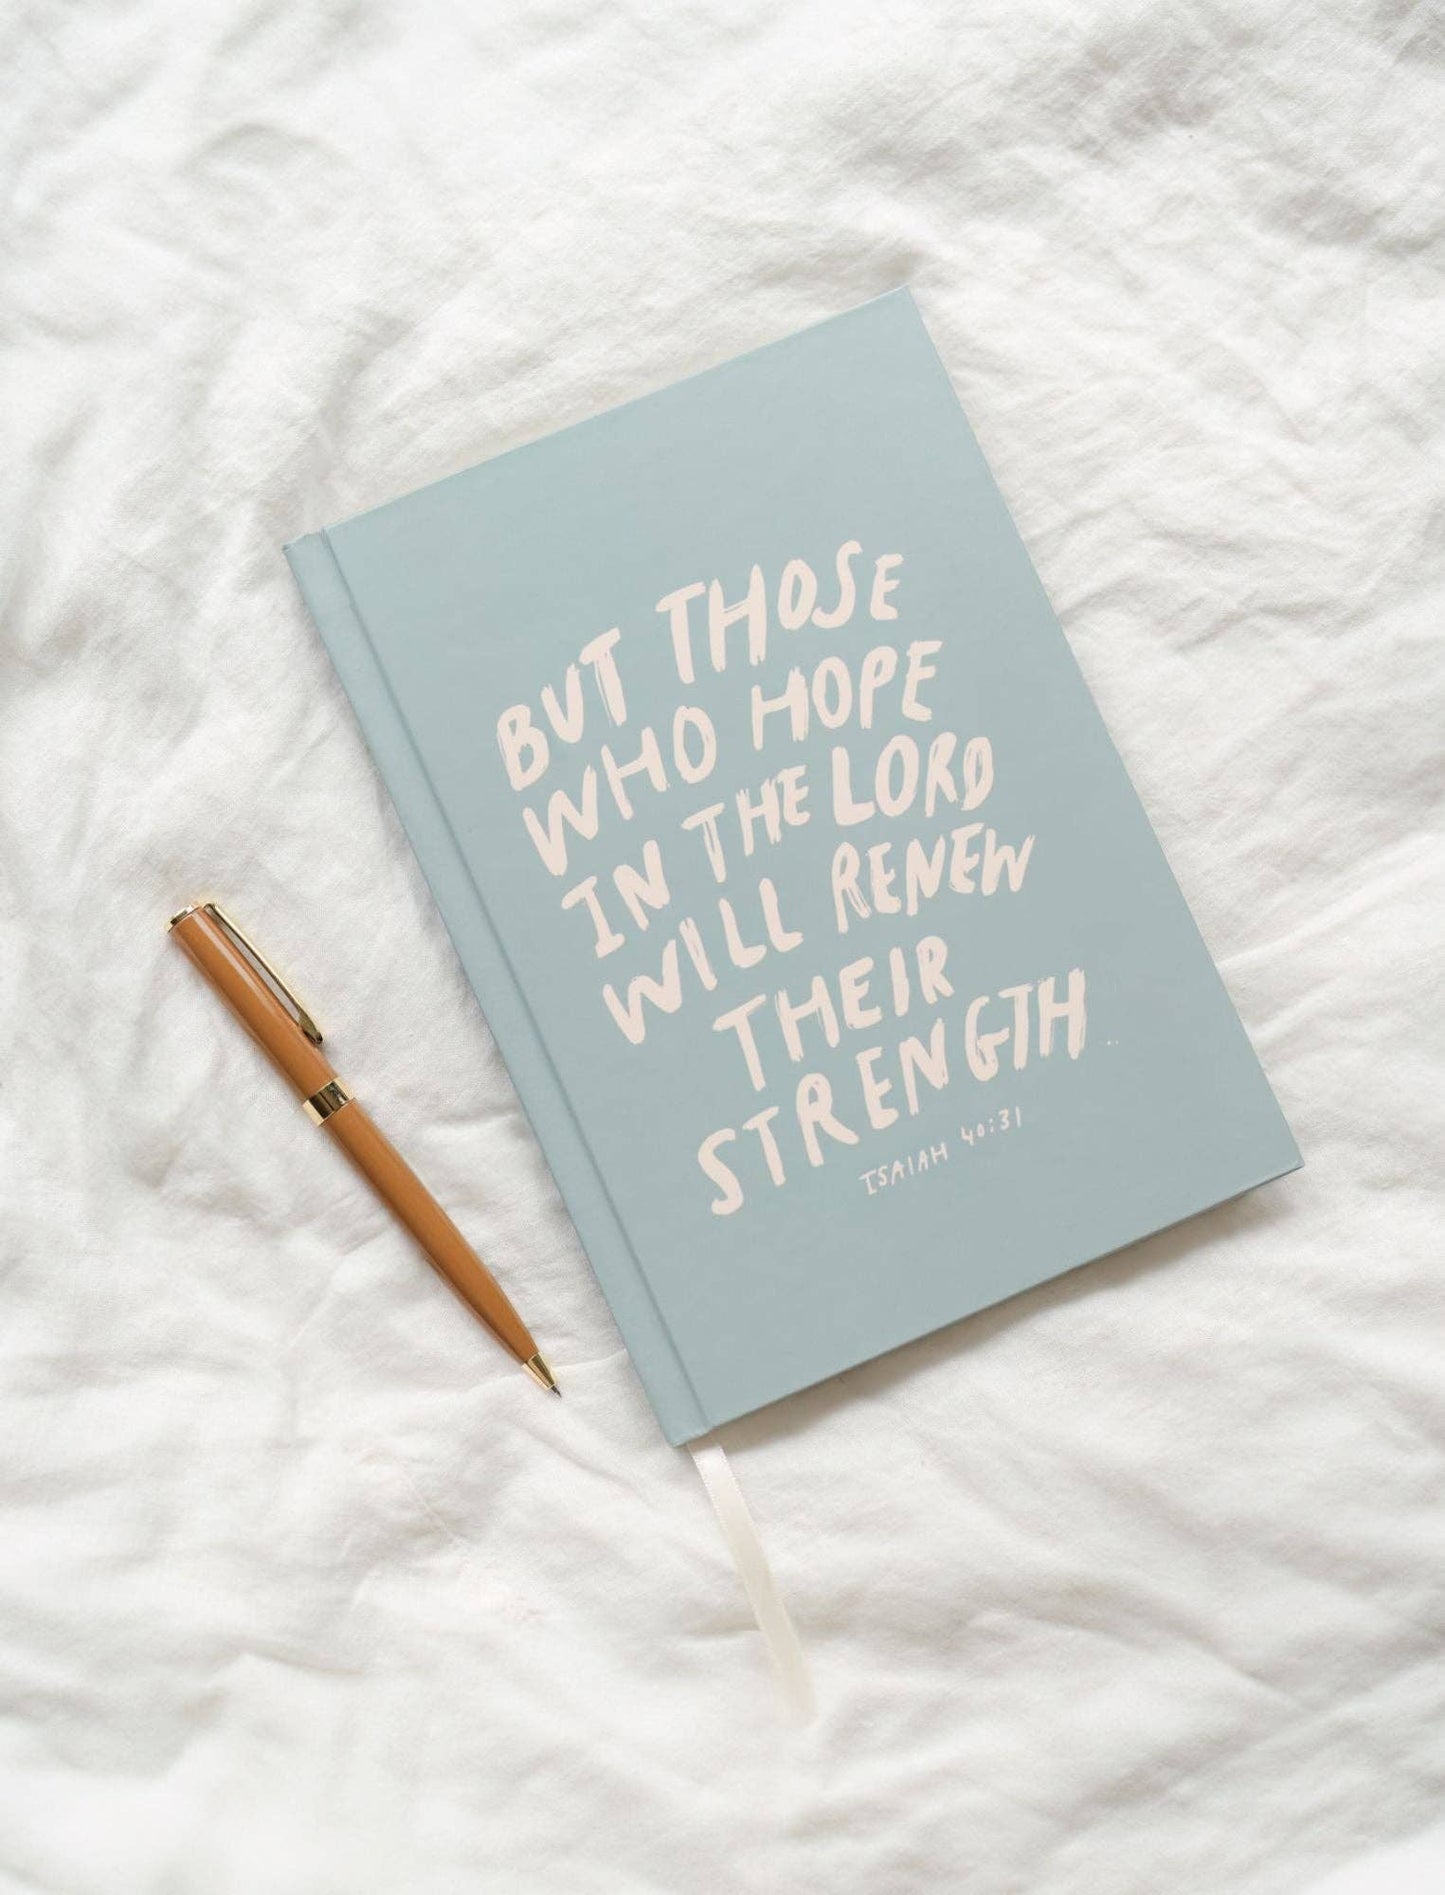 BUT THOSE
WHO HOPE
IN THE LORD
WILL RENEW
THEIR
STRENGTH
ISAIAH 40:31